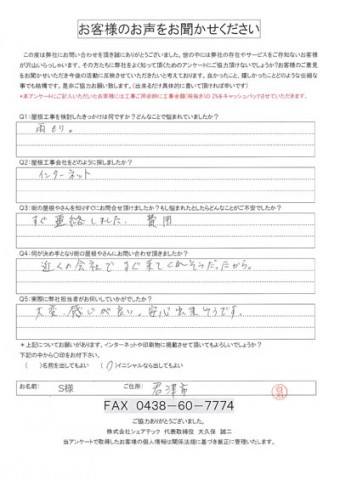 お客様のお声をお聞かせください
この度は弊社にお問い合わせを頂き誠にありがとうございました。世の中には弊社の存在やサービスをご存知ないお客様
が沢山いらっしゃいます。その方たちに弊社をよく知って頂くためのアンケートにご協力頂けないでしょうか?お客様のご意見
をお聞かせいただき今後の活動に反映させていただきたいと考えております。良かったこと、嬉しかったことどのような些細な
事でも結構です。是非ご協力お願い致します。(出来るだけ具体的に書いて頂ければ幸いです)
*本アンケートにご記入いただいたお客様には工事ご用命時に工事金額(税抜き)の2%をキャッシュバックさせていただきます。
Q1:屋根工事を検討したきっかけは何ですか?どんなことで悩まれていましたか?
雨もり。
Q2:屋根工事会社をどのように探しましたか?
インターネット
Q3:街の屋根やさんを知りすぐにお問合せ頂けましたか?もし悩まれたとしたらどんなことがご不安でしたか?
すぐ連絡しました。 費用
Q4:何が決め手となり街の屋根やさんにお問い合わせ頂きましたか?
近くの会社ですぐ来てくれそうだ。だから。
Q5:実際に弊社担当者がお伺いしていかがでしたか?
大変、感じが良い。安心出来そうです。
*上記についてお願いがあります。インターネットや印刷物に掲載させて頂いてもよろしいでしょうか?
下記の中から○印をお付下さい。
( )名前を出してもよい (○)イニシャルなら出してもよい
お名前: S様 ご住所: 君津市
FAX 0438-60-7774
ご協力ありがとうございました。
株式会社シェアテック 代表取締役 大久保 誠二
当アンケートで取得したお客様の個人情報は関係法規に基づき厳正に管理いたします。